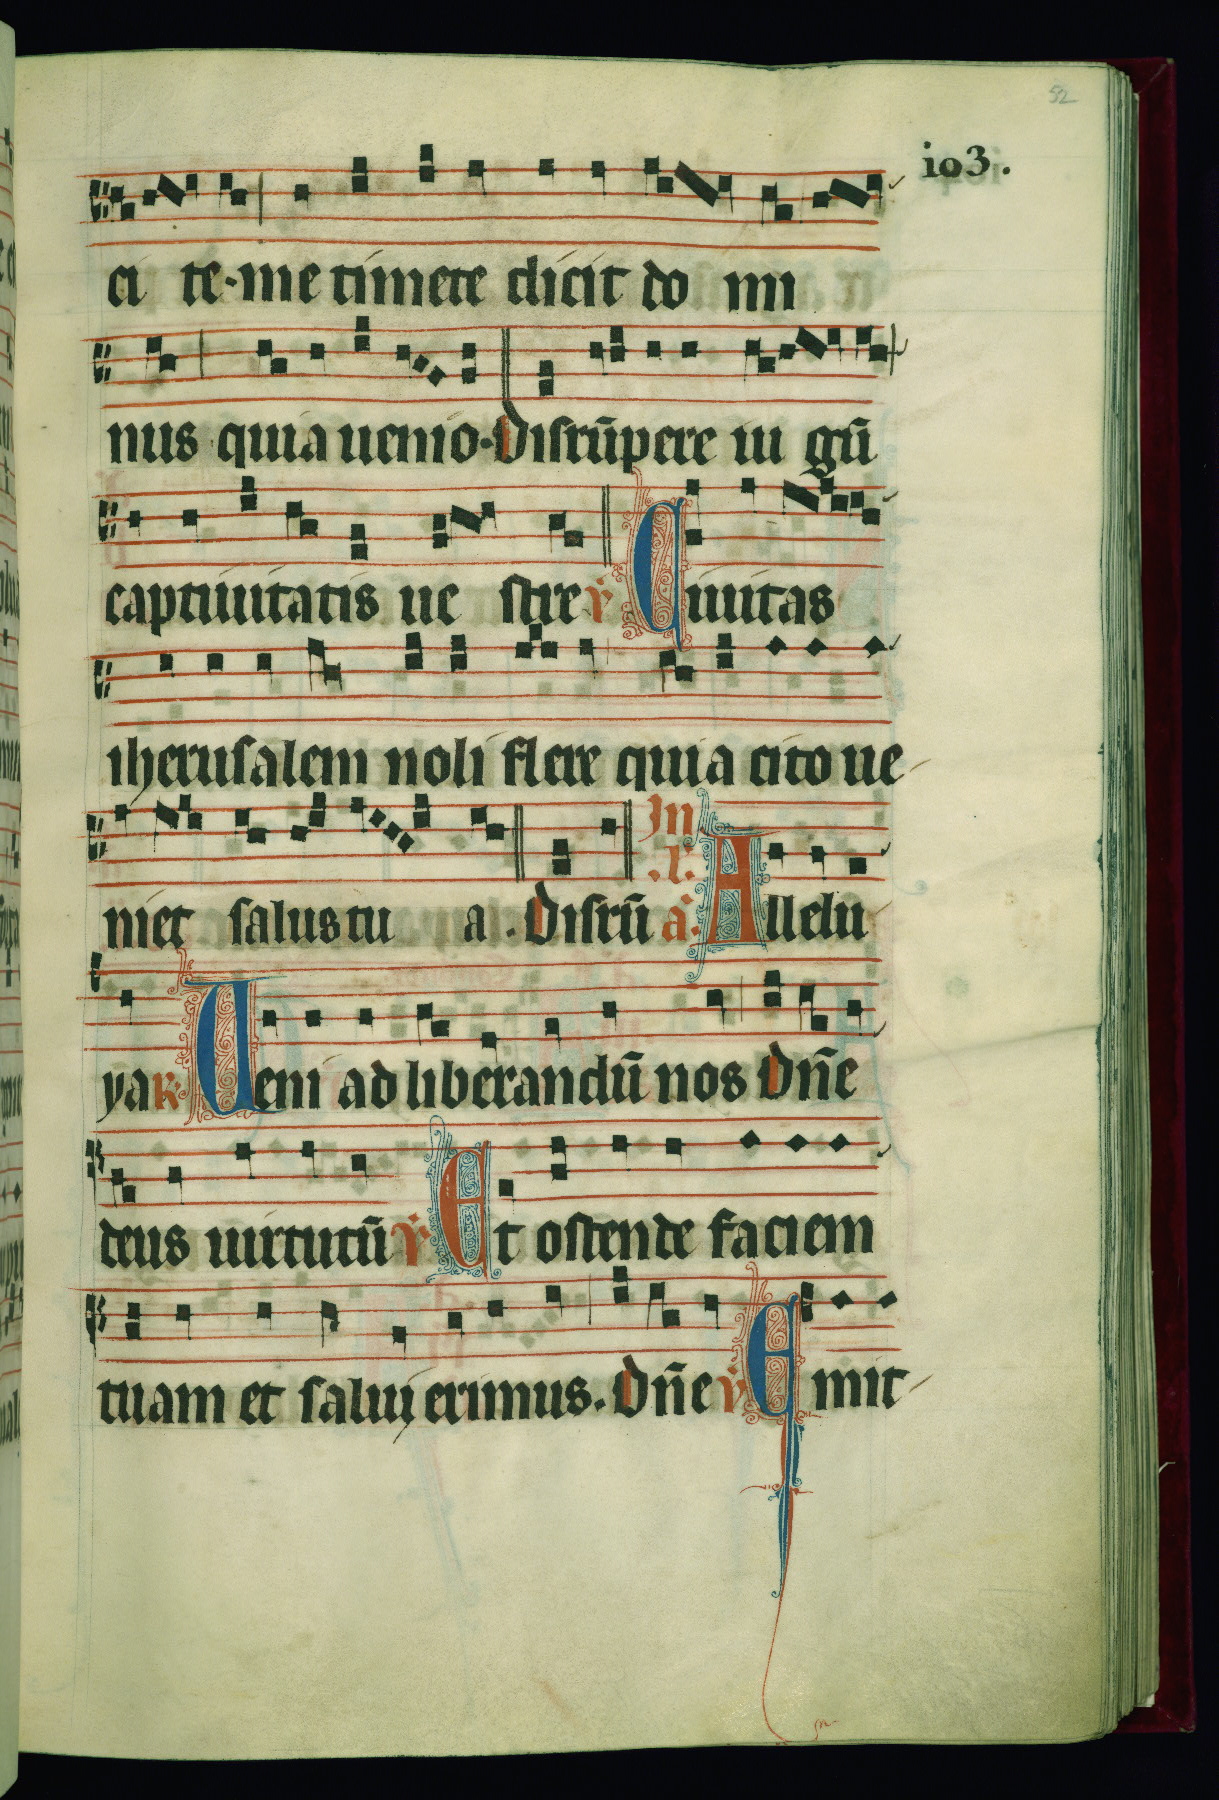 52
103.
ci te·me timete dicit do mi
nus quia uenio·Disrūpere iu gū
captiuitatis ue stre ℣ Ciuitas
iherusalem noli flere quia cito ue
niet salus tu a. Disrū In .i. a. Allelu
ya ℟. Ueni ad liberandū nos dn̄e
deus uirtutū ℣ Et ostende faciem
tuam et salui erimus. Dn̄e ℣ Emit